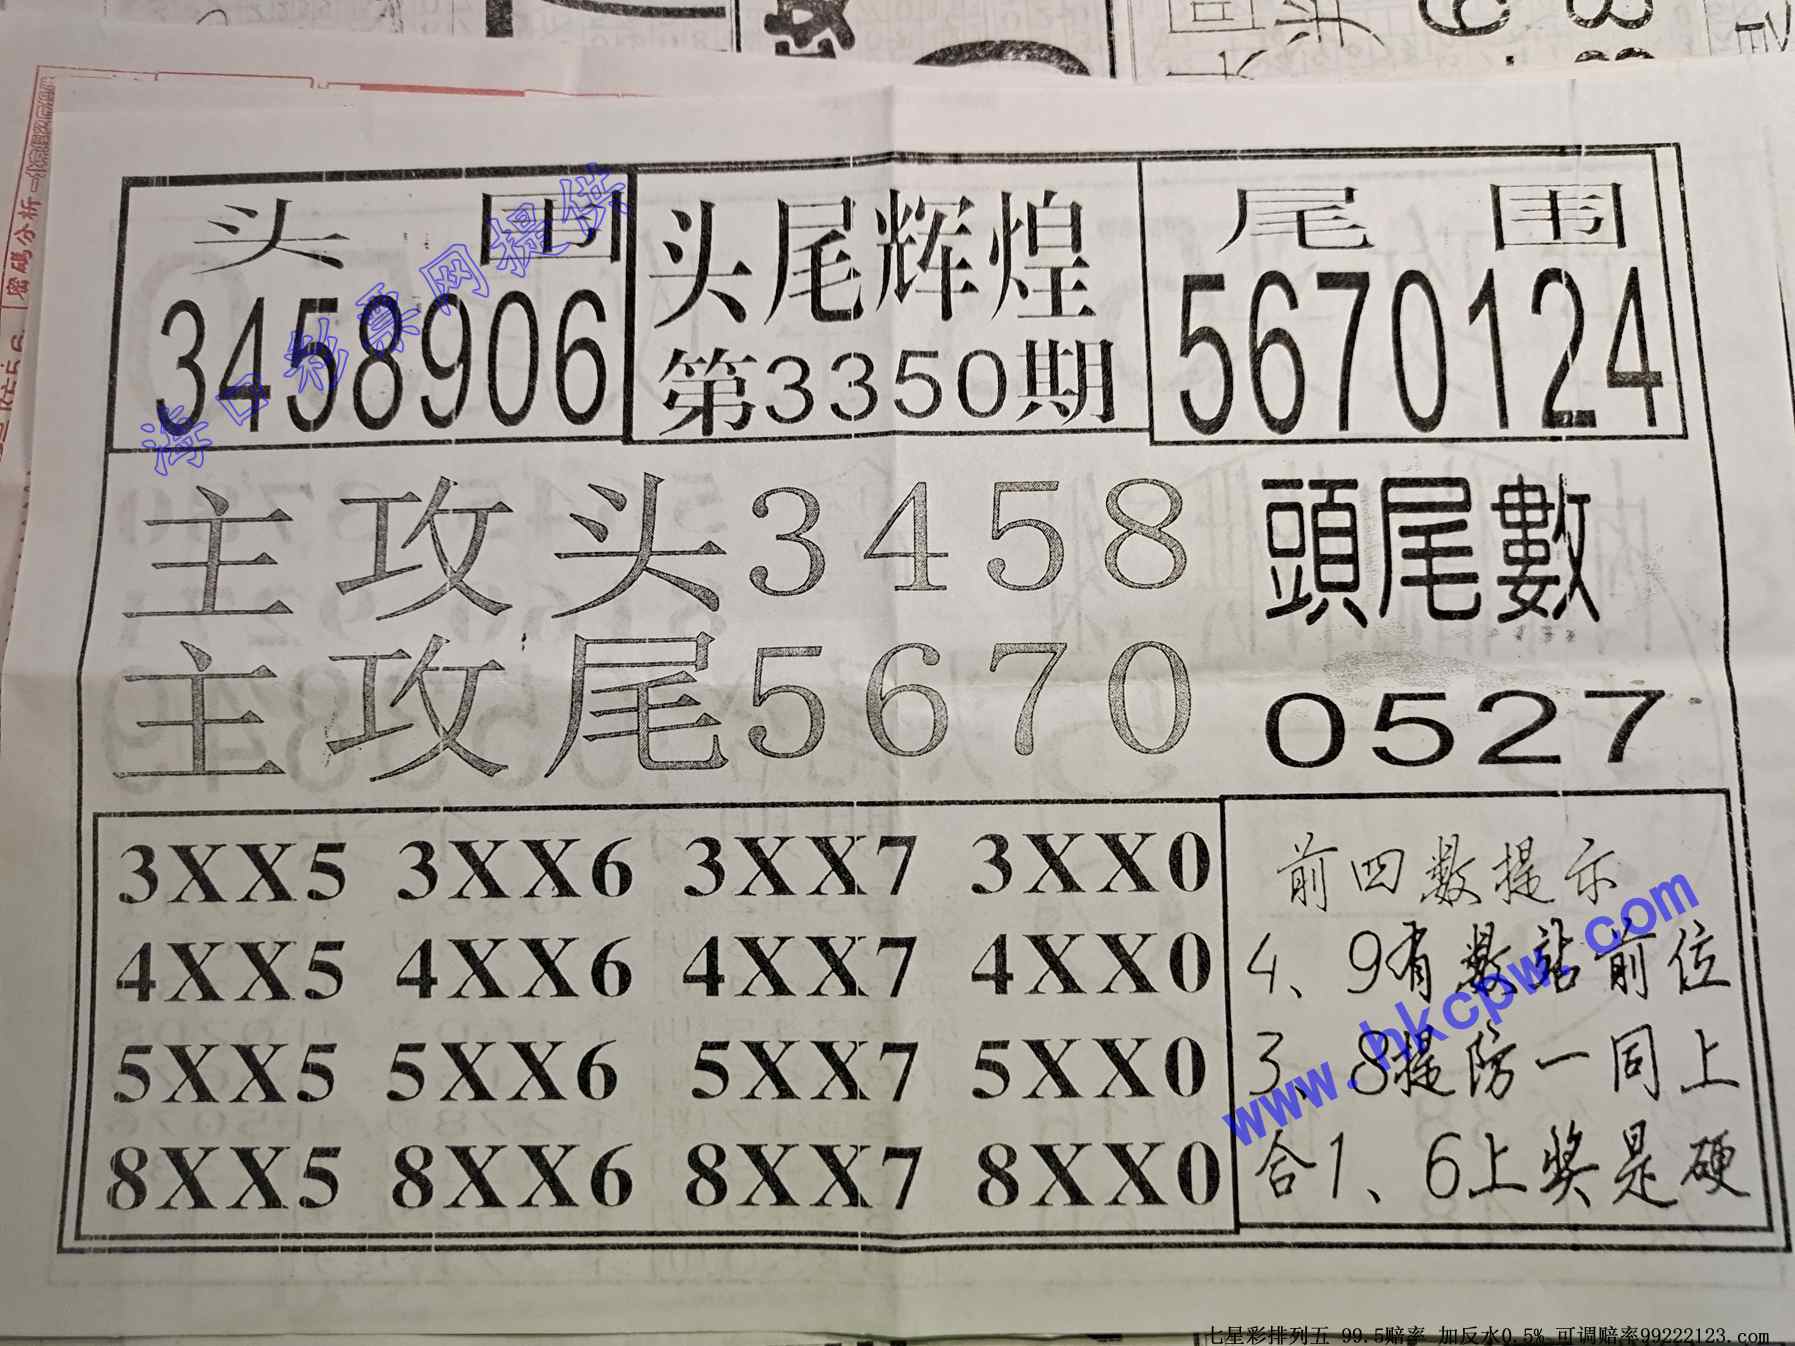 头围
3458906
头尾辉煌
第3350期
尾围
5670124
主攻头3458
主攻尾5670
頭尾數
0527
3XX5 3XX6 3XX7 3XX0
4XX5 4XX6 4XX7 4XX0
5XX5 5XX6 5XX7 5XX0
8XX5 8XX6 8XX7 8XX0
前四数提示
4、9有数站前位
3、8提防一同上
合1、6上奖是硬
海口彩票网提供
www.hkcpw.com
密碼分析
七星彩排列五 99.5赔率 加反水0.5% 可调赔率99222123.com